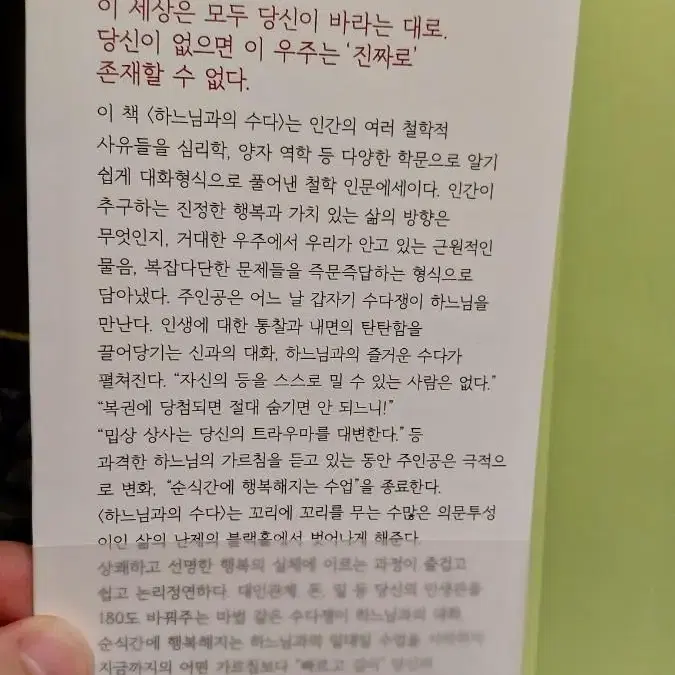 이 세상은 모두 당신이 바라는 대로.
당신이 없으면 이 우주는 '진짜로'
존재할 수 없다.
이 책 〈하느님과의 수다〉는 인간의 여러 철학적
사유들을 심리학, 양자 역학 등 다양한 학문으로 알기
쉽게 대화형식으로 풀어낸 철학 인문에세이다. 인간이
추구하는 진정한 행복과 가치 있는 삶의 방향은
무엇인지, 거대한 우주에서 우리가 안고 있는 근원적인
물음, 복잡다단한 문제들을 즉문즉답하는 형식으로
담아냈다. 주인공은 어느 날 갑자기 수다쟁이 하느님을
만난다. 인생에 대한 통찰과 내면의 탄탄함을
끌어당기는 신과의 대화, 하느님과의 즐거운 수다가
펼쳐진다. “자신의 등을 스스로 밀 수 있는 사람은 없다.”
“복권에 당첨되면 절대 숨기면 안 되느니!”
“밉상 상사는 당신의 트라우마를 대변한다.” 등
과격한 하느님의 가르침을 듣고 있는 동안 주인공은 극적으
로 변화, “순식간에 행복해지는 수업”을 종료한다.
〈하느님과의 수다〉는 꼬리에 꼬리를 무는 수많은 의문투성
이인 삶의 난제의 블랙홀에서 벗어나게 해준다.
상쾌하고 선명한 행복의 실체에 이르는 과정이 즐겁고
쉽고 논리정연하다. 대인관계, 돈, 일 등 당신의 인생관을
180도 바꿔주는 마법 같은 수다쟁이 하느님과의 대화
순식간에 행복해지는 하느님과의 일대일 수업을
지금까지의 어떤 가르침보다 “빠르고 깊이”